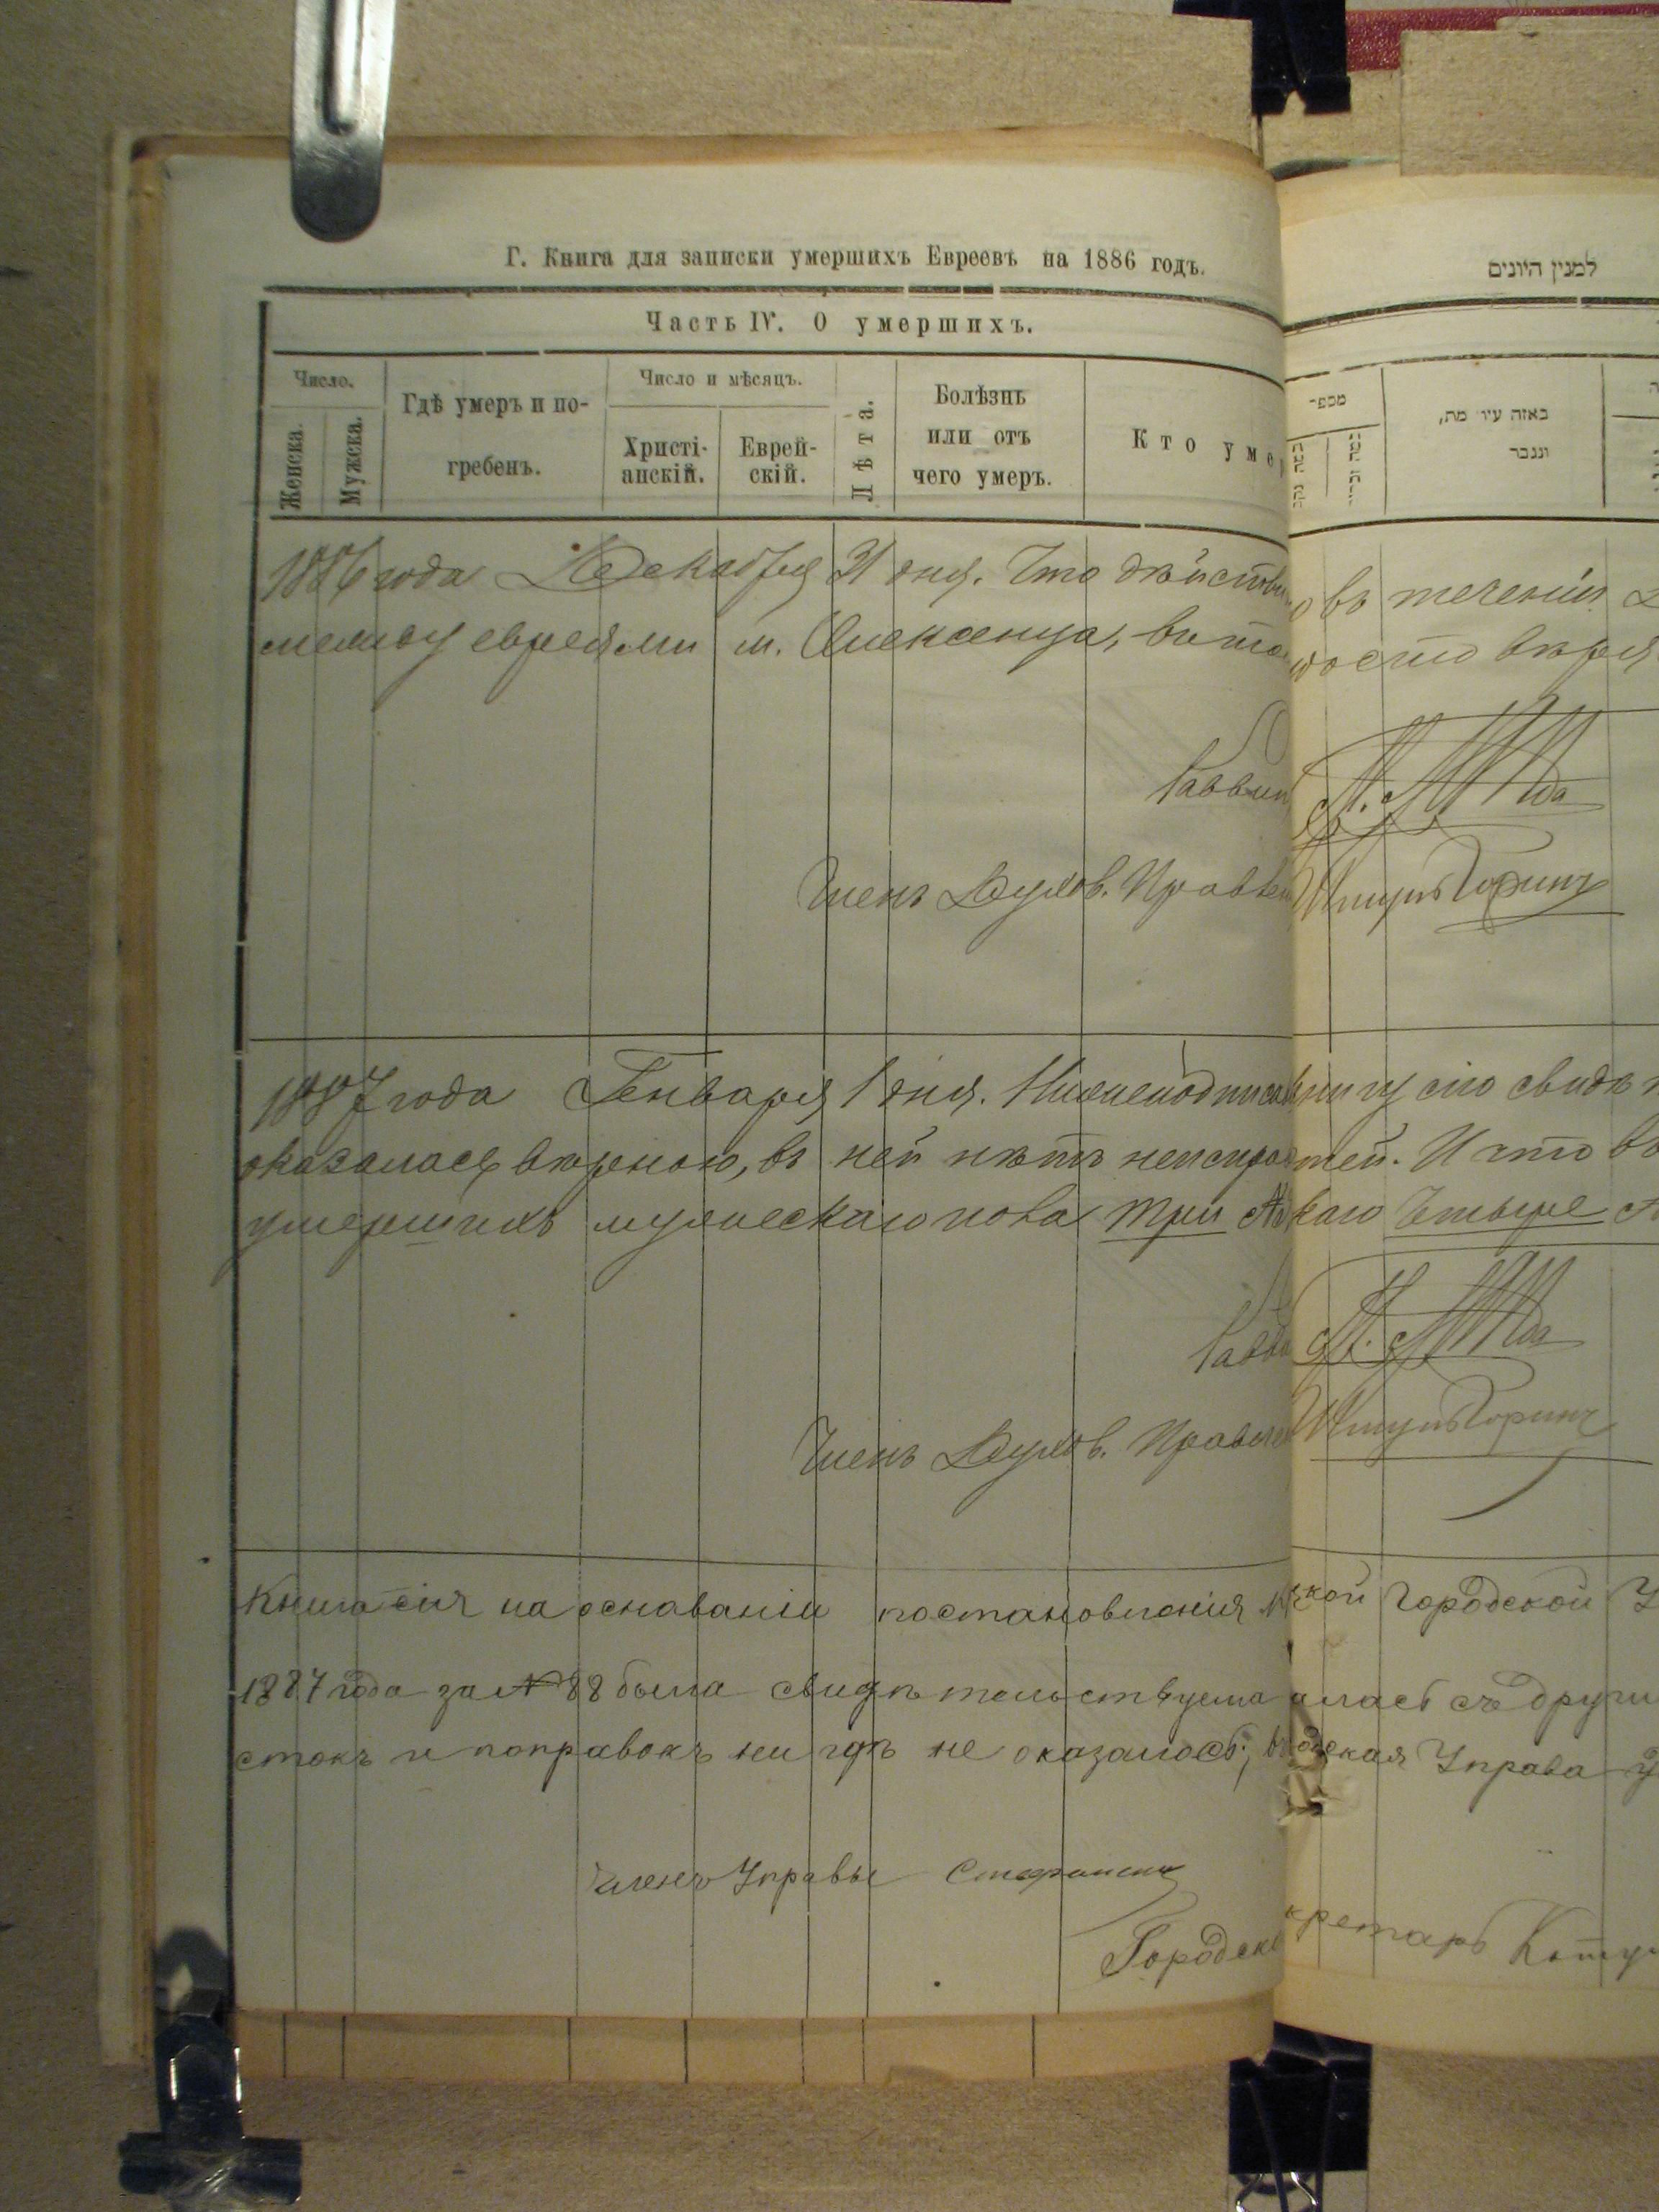 Г. Книга для записки умершихъ Евреевъ на 1886 годъ.
Часть IV. О умершихъ.
Число.
Женска.
Мужска.
Гдѣ умеръ и по-
гребенъ.
Число и мѣсяцъ.
Христі-
анскій.
Еврей-
скій.
Лѣта.
Болѣзнь
или отъ
чего умеръ.
Кто умер
למנין היונים
מספר
באזה עיר מת,
ונגבר
1886 года Декабря 31 дня. Что дѣйстви
о въ теченіи
между евреями м. Олексенца, въ то
Раввин
Членъ Духов. Правлен
1887 года Генваря 1 дня. Нижеподписав
книгу сію свидѣт
оказалась вѣрною, въ ней нѣтъ неисправ
тей. И что въ
умершихъ мужескаго пола три
каго Четыре
Равви
Членъ Духов. Правлен
Книга сія на основаніи постановленія
ской Городской У
1887 года за № 88 была свидѣтельствуема
алась съ други
стокъ и поправокъ нигдѣ не оказалось, в
одская Управа у
Членъ Управы
Городск
кретарь